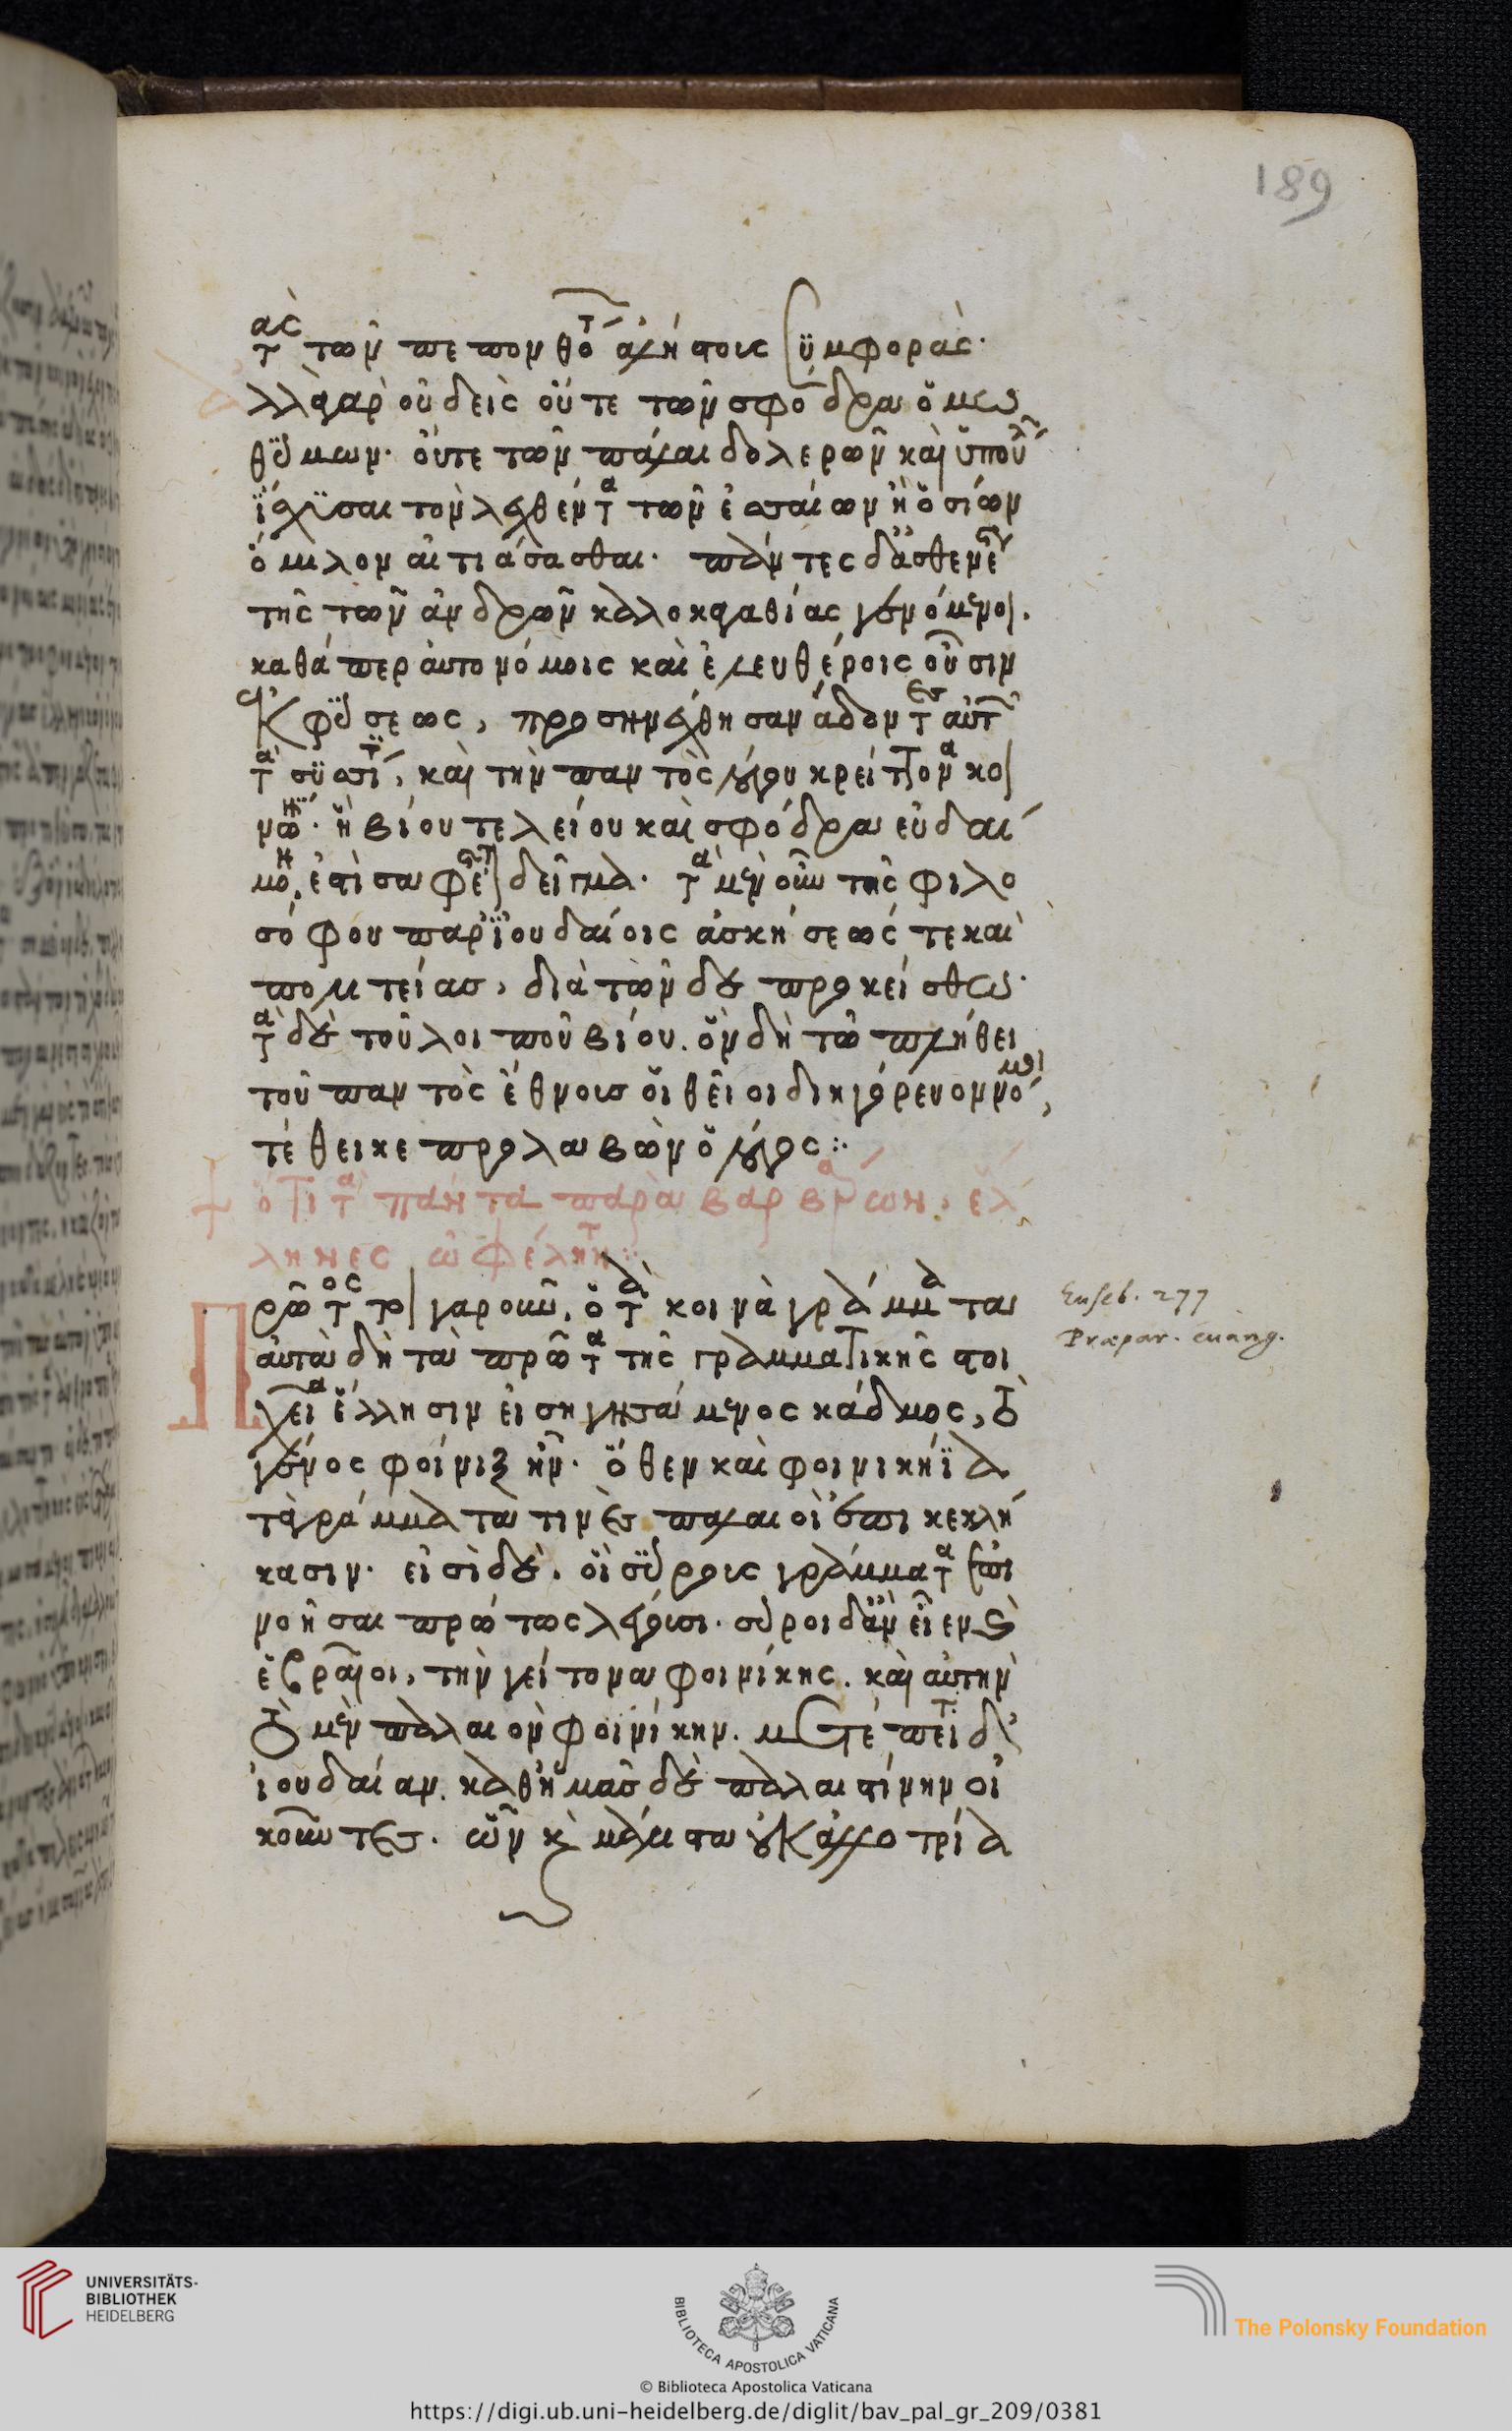 τὰς τῶν πεπονθότων ἀλήστους συμφοράς.
λλὰ γὰρ οὐδεὶς οὔτε τῶν σφόδρα ὄμω
θύμων. οὔτε τῶν πάλαι δολερῶν καὶ ὑπούλων
ἴσχυσαι τὸν λεχθέντα τῶν ἐσσαίων ἢ ὁσίων
ὅμιλον αἰτιάσασθαι. πάντες δ' ἀσθενέστεροι
τῆς τῶν ἀνδρῶν καλοκαγαθίας γενόμενοι.
καθάπερ αὐτονόμοις καὶ ἐλευθέροις οὖσιν
ἐκ φύσεως, προσηνέχθησαν ἄδοντες αὐτῶν
τὰ συσσίτια, καὶ τὴν παντὸς λόγου κρείττονα κοι
νωνίαν. ἢ βίου τελείου καὶ σφόδρα εὐδαί
μονος ἐστὶ σαφέστατον δεῖγμα. τὰ μὲν οὖν τῆς φιλο
σόφου παρ' ἰουδαίοις ἀσκήσεώς τε καὶ
πολιτείας, διὰ τῶνδε προκείσθω.
τὰ δὲ τοῦ λοιποῦ βίου. ὃν δὴ τῷ πλήθει
τοῦ παντὸς ἔθνους οἱ θεῖοι διηγόρευον νόμοι,
τέθεικε προλαβὼν ὁ λόγος:
ὅτι τὰ πάντα παρὰ βαρβάρων, ἕλ
ληνες ὠφέληνται:
Πρῶτος τοιγαροῦν, ὁ τὰ κοινὰ γράμματα
αὐτὰ δὴ τὰ πρῶτα τῆς γραμματικῆς στοι
χεῖα ἕλλησιν εἰσηγησάμενος κάδμος, τὸ
γένος φοίνιξ ἦν. ὅθεν καὶ φοινικήϊα
τὰ γράμματα τινὲς πάλαι οἱ ἐπικεκλή
κασιν. εἰσὶ δὲ, οἳ σύρους γράμματα ἐπι
νοῆσαι πρώτως λέγουσι. σύροι δ' ἂν εἶεν καὶ
ἑβραῖοι, τὴν γείτονα φοινίκης. καὶ αὐτὴν
τὸ μὲν παλαιὸν φοινίκην. μετέπειτα δὲ
ἰουδαίαν. καθ' ἡμᾶς δὲ παλαιστίνην οἰ
κοῦντες. ὧν καὶ μάλιστα οὐκ ἀλλότρια
189
Euseb. 277
Præpar. euang.
UNIVERSITÄTS-
BIBLIOTHEK
HEIDELBERG
BIBLIOTECA APOSTOLICA VATICANA
© Biblioteca Apostolica Vaticana
The Polonsky Foundation
https://digi.ub.uni-heidelberg.de/diglit/bav_pal_gr_209/0381